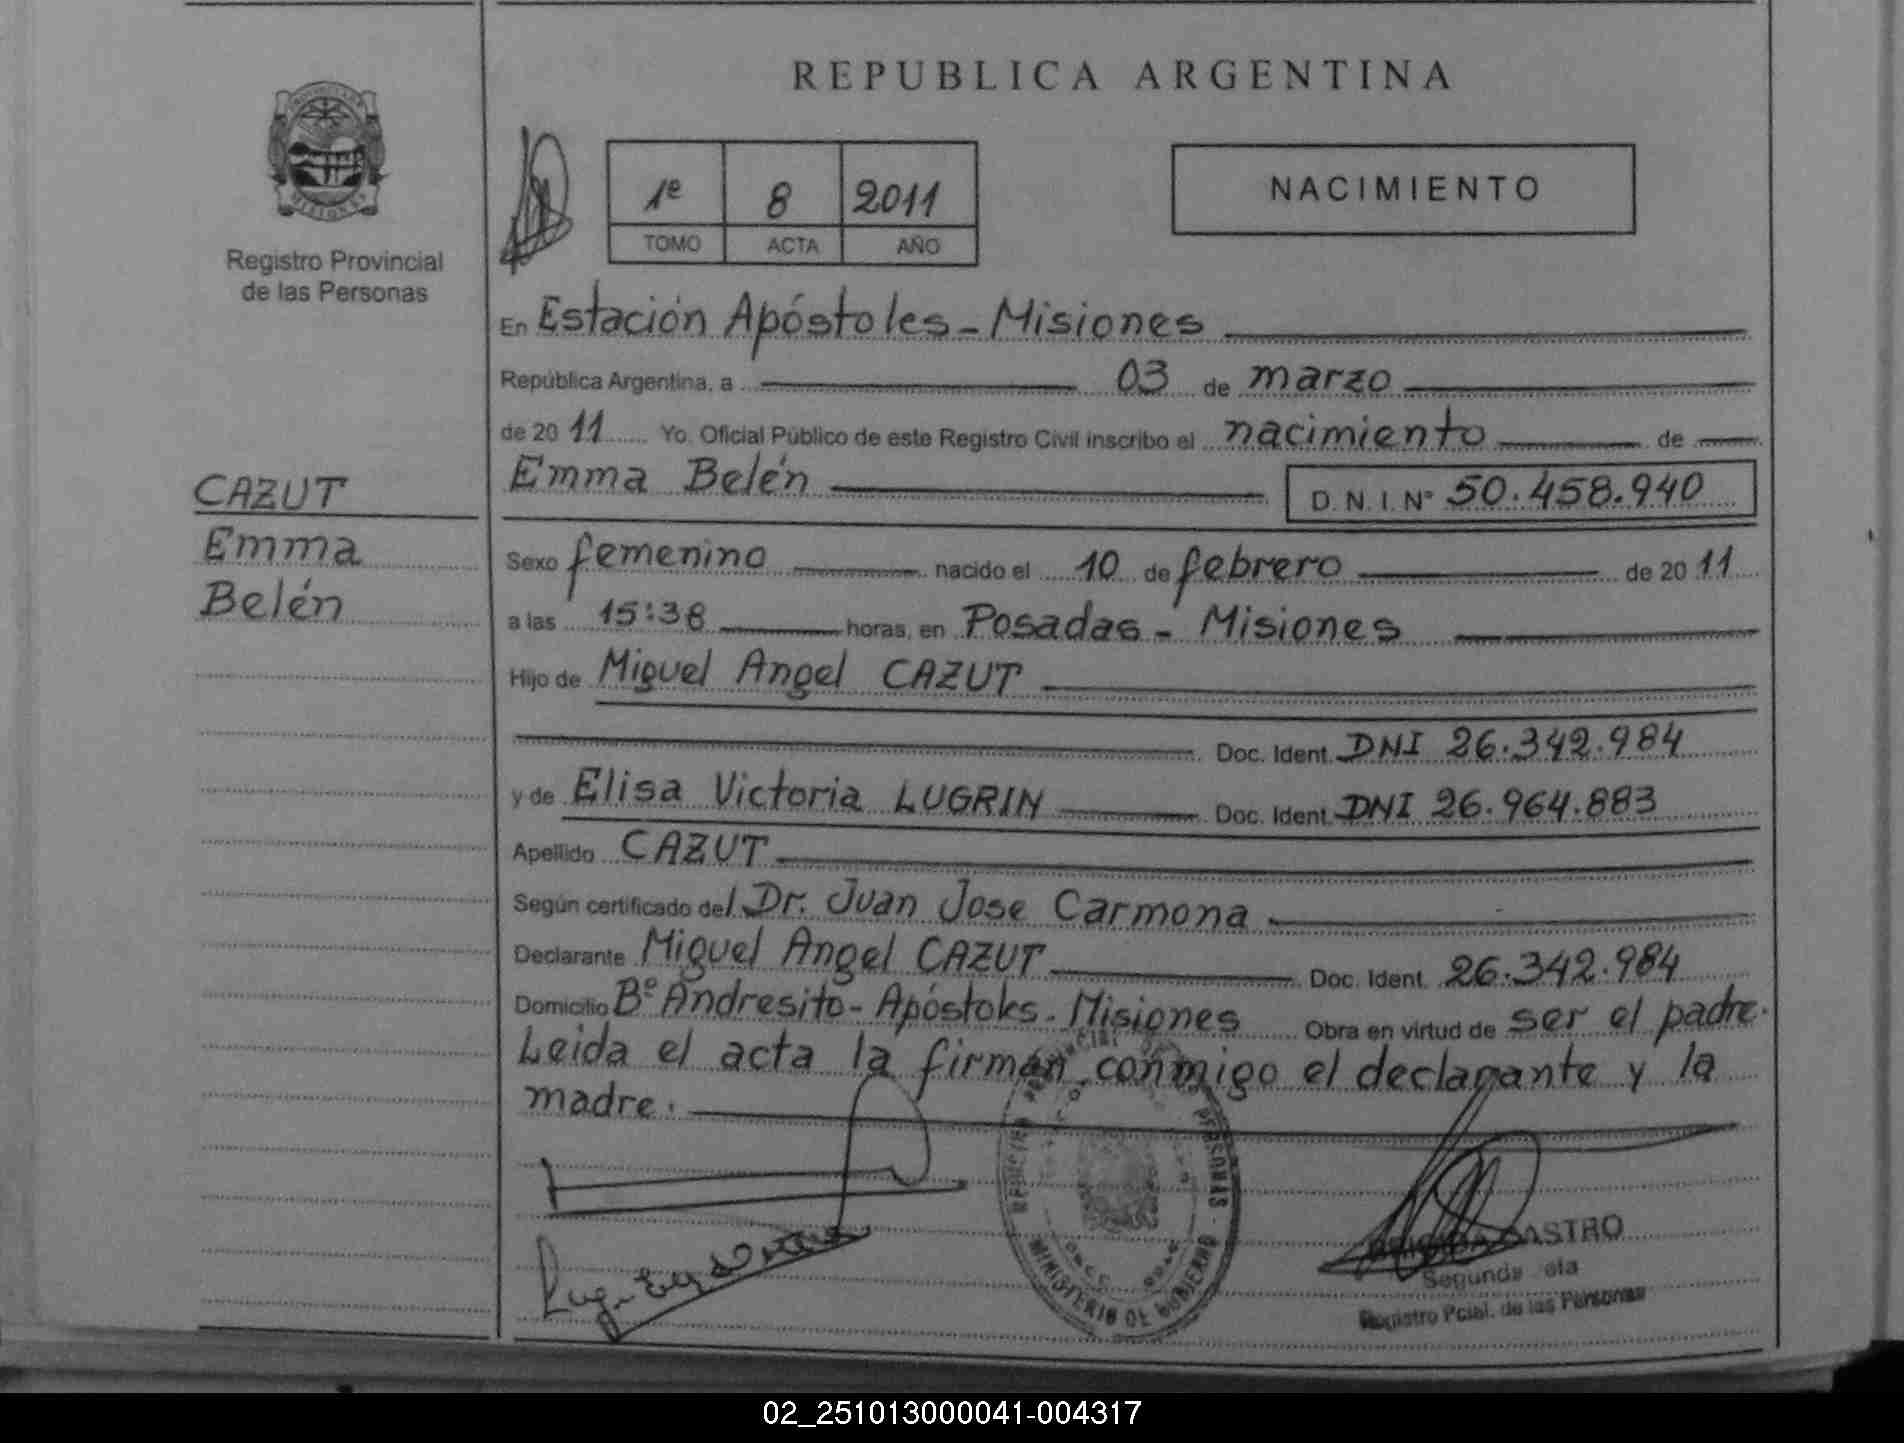 REPUBLICA ARGENTINA
Registro Provincial
de las Personas
1º 8 2011
TOMO ACTA AÑO
NACIMIENTO
En Estación Apóstoles - Misiones
República Argentina, a 03 de marzo
de 20 11 Yo. Oficial Público de este Registro Civil inscribo el nacimiento de
Emma Belén D.N.I. Nº 50.458.940
CAZUT
Emma
Belén
Sexo femenino nacido el 10 de febrero de 20 11
a las 15:38 horas, en Posadas - Misiones
Hijo de Miguel Angel CAZUT
Doc. Ident. DNI 26.342.984
y de Elisa Victoria LUGRIN Doc. Ident. DNI 26.964.883
Apellido CAZUT
Según certificado del Dr. Juan Jose Carmona
Declarante Miguel Angel CAZUT Doc. Ident. 26.342.984
Domicilio Bº Andresito - Apóstoles - Misiones Obra en virtud de ser el padre.
Leida el acta la firman conmigo el declarante y la
madre.
MINISTERIO DE GOBIERNO
CASTRO
Registro Pcial. de las Personas
02_251013000041-004317